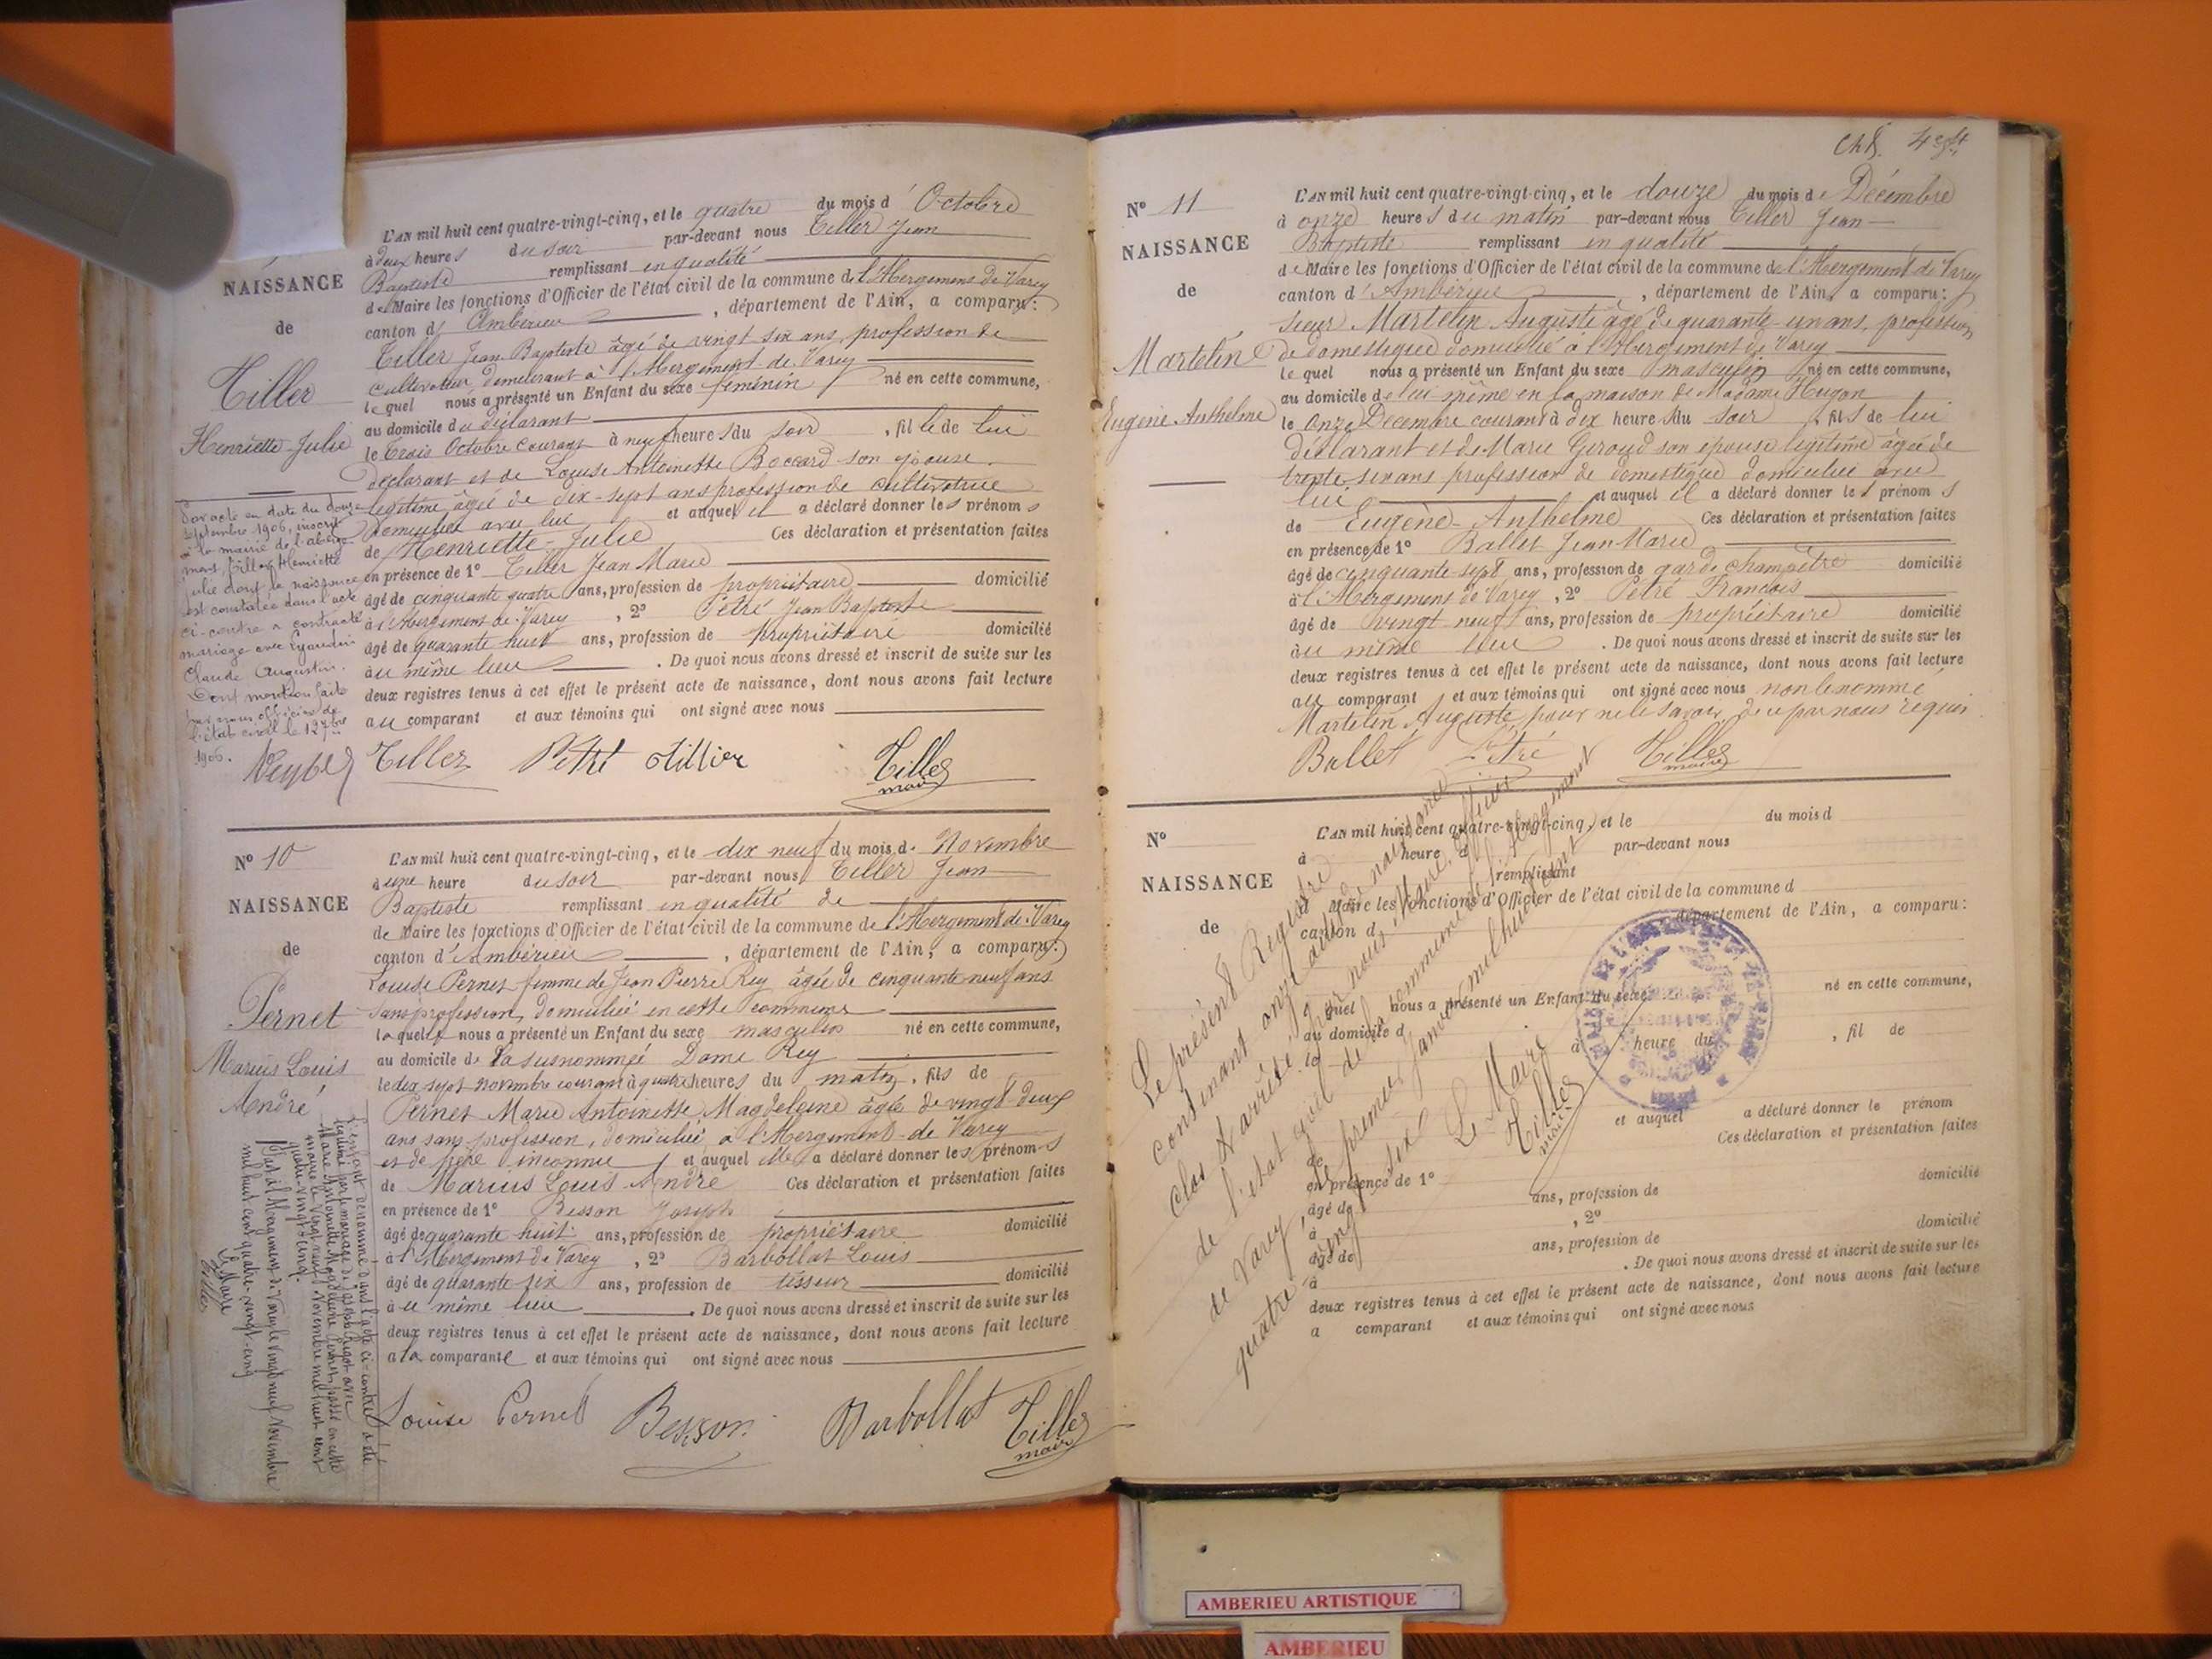 NAISSANCE
de
Tiller
Henriette-Julie
L'AN mil huit cent quatre-vingt-cinq, et le quatre du mois d'Octobre
à deux heures du soir par-devant nous Tiller Jean
Baptiste remplissant en qualité
de Maire les fonctions d'Officier de l'état civil de la commune de l'Abergement de Varey
canton d'Ambérieu , département de l'Ain, a comparu:
Tiller Jean Baptiste âgé de vingt six ans, profession de
cultivateur demeurant à l'Abergement de Varey
le quel nous a présenté un Enfant du sexe féminin né en cette commune,
au domicile du déclarant
le trois Octobre courant à neuf heures du soir , fille de lui
déclarant et de Louise Antoinette Boccard son épouse
légitime âgée de dix-sept ans profession de cultivatrice
domiciliée avec lui et auquel il a déclaré donner les prénoms
de Henriette-Julie Ces déclaration et présentation faites
en présence de 1° Tiller Jean Marie
âgé de cinquante quatre ans, profession de propriétaire domicilié
à l'Abergement de Varey , 2° Pétré Jean Baptiste
âgé de quarante huit ans, profession de propriétaire domicilié
au même lieu . De quoi nous avons dressé et inscrit de suite sur les
deux registres tenus à cet effet le présent acte de naissance, dont nous avons fait lecture
au comparant et aux témoins qui ont signé avec nous
Tiller Pétré Tillier Tiller
maire
Par acte en date du douze
septembre 1906, inscrit
à la mairie de l'aberge-
ment, Tiller Henriette
Julie dont la naissance
est constatée dans l'acte
ci-contre a contracté
mariage avec
Claude Augustin.
Dont mention faite
par nous officier de
l'état civil le 12 7bre
1906.
N° 10
NAISSANCE
de
Pernet
Marius Louis
André
L'AN mil huit cent quatre-vingt-cinq, et le dix neuf du mois de Novembre
à une heure du soir par-devant nous Tiller Jean
Baptiste remplissant en qualité de
de Maire les fonctions d'Officier de l'état civil de la commune de l'Abergement de Varey
canton d'Ambérieu , département de l'Ain, a comparu:
Louise Pernet femme de Jean Pierre Rey âgée de cinquante neuf ans
sans profession, domiciliée en cette commune
laquelle nous a présenté un Enfant du sexe masculin né en cette commune,
au domicile de la susnommée Dame Rey
le dix sept novembre courant à quatre heures du matin, fils de
Pernet Marie Antoinette Magdeleine âgée de vingt deux
ans sans profession, domiciliée à l'Abergement de Varey
et de père inconnu et auquel elle a déclaré donner les prénoms
de Marius Louis André Ces déclaration et présentation faites
en présence de 1° Besson Joseph
âgé de quarante huit ans, profession de propriétaire domicilié
à l'Abergement de Varey , 2° Barbollat Louis
âgé de quarante six ans, profession de tisseur domicilié
au même lieu . De quoi nous avons dressé et inscrit de suite sur les
deux registres tenus à cet effet le présent acte de naissance, dont nous avons fait lecture
a la comparante et aux témoins qui ont signé avec nous
Louise Pernet Besson Barbollat Tiller
maire
L'enfant dénommé dans l'acte ci-contre a été
légitimé par mariage de avec
Marie Antoinette Magdeleine Pernet, passé en cette
mairie le vingt neuf Novembre mil huit cent
quatre-vingt-cinq.
Fait à l'Abergement de Varey le vingt neuf Novembre
mil huit cent quatre-vingt-cinq
Le Maire
Tiller
N° 11
NAISSANCE
de
Martelin
Eugène Anthelme
L'AN mil huit cent quatre-vingt-cinq, et le douze du mois de Décembre
à onze heures du matin par-devant nous Tiller Jean
Baptiste remplissant en qualité
de Maire les fonctions d'Officier de l'état civil de la commune de l'Abergement de Varey
canton d'Ambérieu , département de l'Ain, a comparu:
sieur Martelin Auguste âgé de quarante-un ans, profession
de domestique domicilié à l'Abergement de Varey
le quel nous a présenté un Enfant du sexe masculin né en cette commune,
au domicile de lui même en la maison de Madame Hugon
le onze Décembre courant à dix heures du soir , fils de lui
déclarant et de Marie Giroud son épouse légitime âgée de
trente six ans profession de domestique domiciliée avec
lui et auquel il a déclaré donner les prénoms
de Eugène-Anthelme Ces déclaration et présentation faites
en présence de 1° Ballet Jean Marie
âgé de cinquante-sept ans, profession de garde champêtre domicilié
à l'Abergement de Varey , 2° Pétré François
âgé de vingt neuf ans, profession de propriétaire domicilié
au même lieu . De quoi nous avons dressé et inscrit de suite sur les
deux registres tenus à cet effet le présent acte de naissance, dont nous avons fait lecture
au comparant et aux témoins qui ont signé avec nous non le nommé
Martelin Auguste pour ne le savoir de ce par nous requis
Ballet Pétré Tiller
maire
N°
NAISSANCE
de
L'AN mil huit cent quatre-vingt-cinq, et le du mois d
à heure d par-devant nous
remplissant
d Maire les fonctions d'Officier de l'état civil de la commune d
canton d département de l'Ain, a comparu:
quel nous a présenté un Enfant du sexe né en cette commune,
au domicile d
le à heure du , fil de
et auquel a déclaré donner le prénom
de Ces déclaration et présentation faites
en présence de 1°
âgé de ans, profession de domicilié
à , 2°
âgé de ans, profession de domicilié
à . De quoi nous avons dressé et inscrit de suite sur les
deux registres tenus à cet effet le présent acte de naissance, dont nous avons fait lecture
a comparant et aux témoins qui ont signé avec nous
Le présent Registre
contenant onze actes de naissances
clos et arrêté par nous Maire, officier
de l'état civil de la commune de l'Abergement
de Varey, le premier Janvier mil huit cent
quatre vingt six
Le Maire
Tiller
maire
AMBERIEU ARTISTIQUE
AMBERIEU